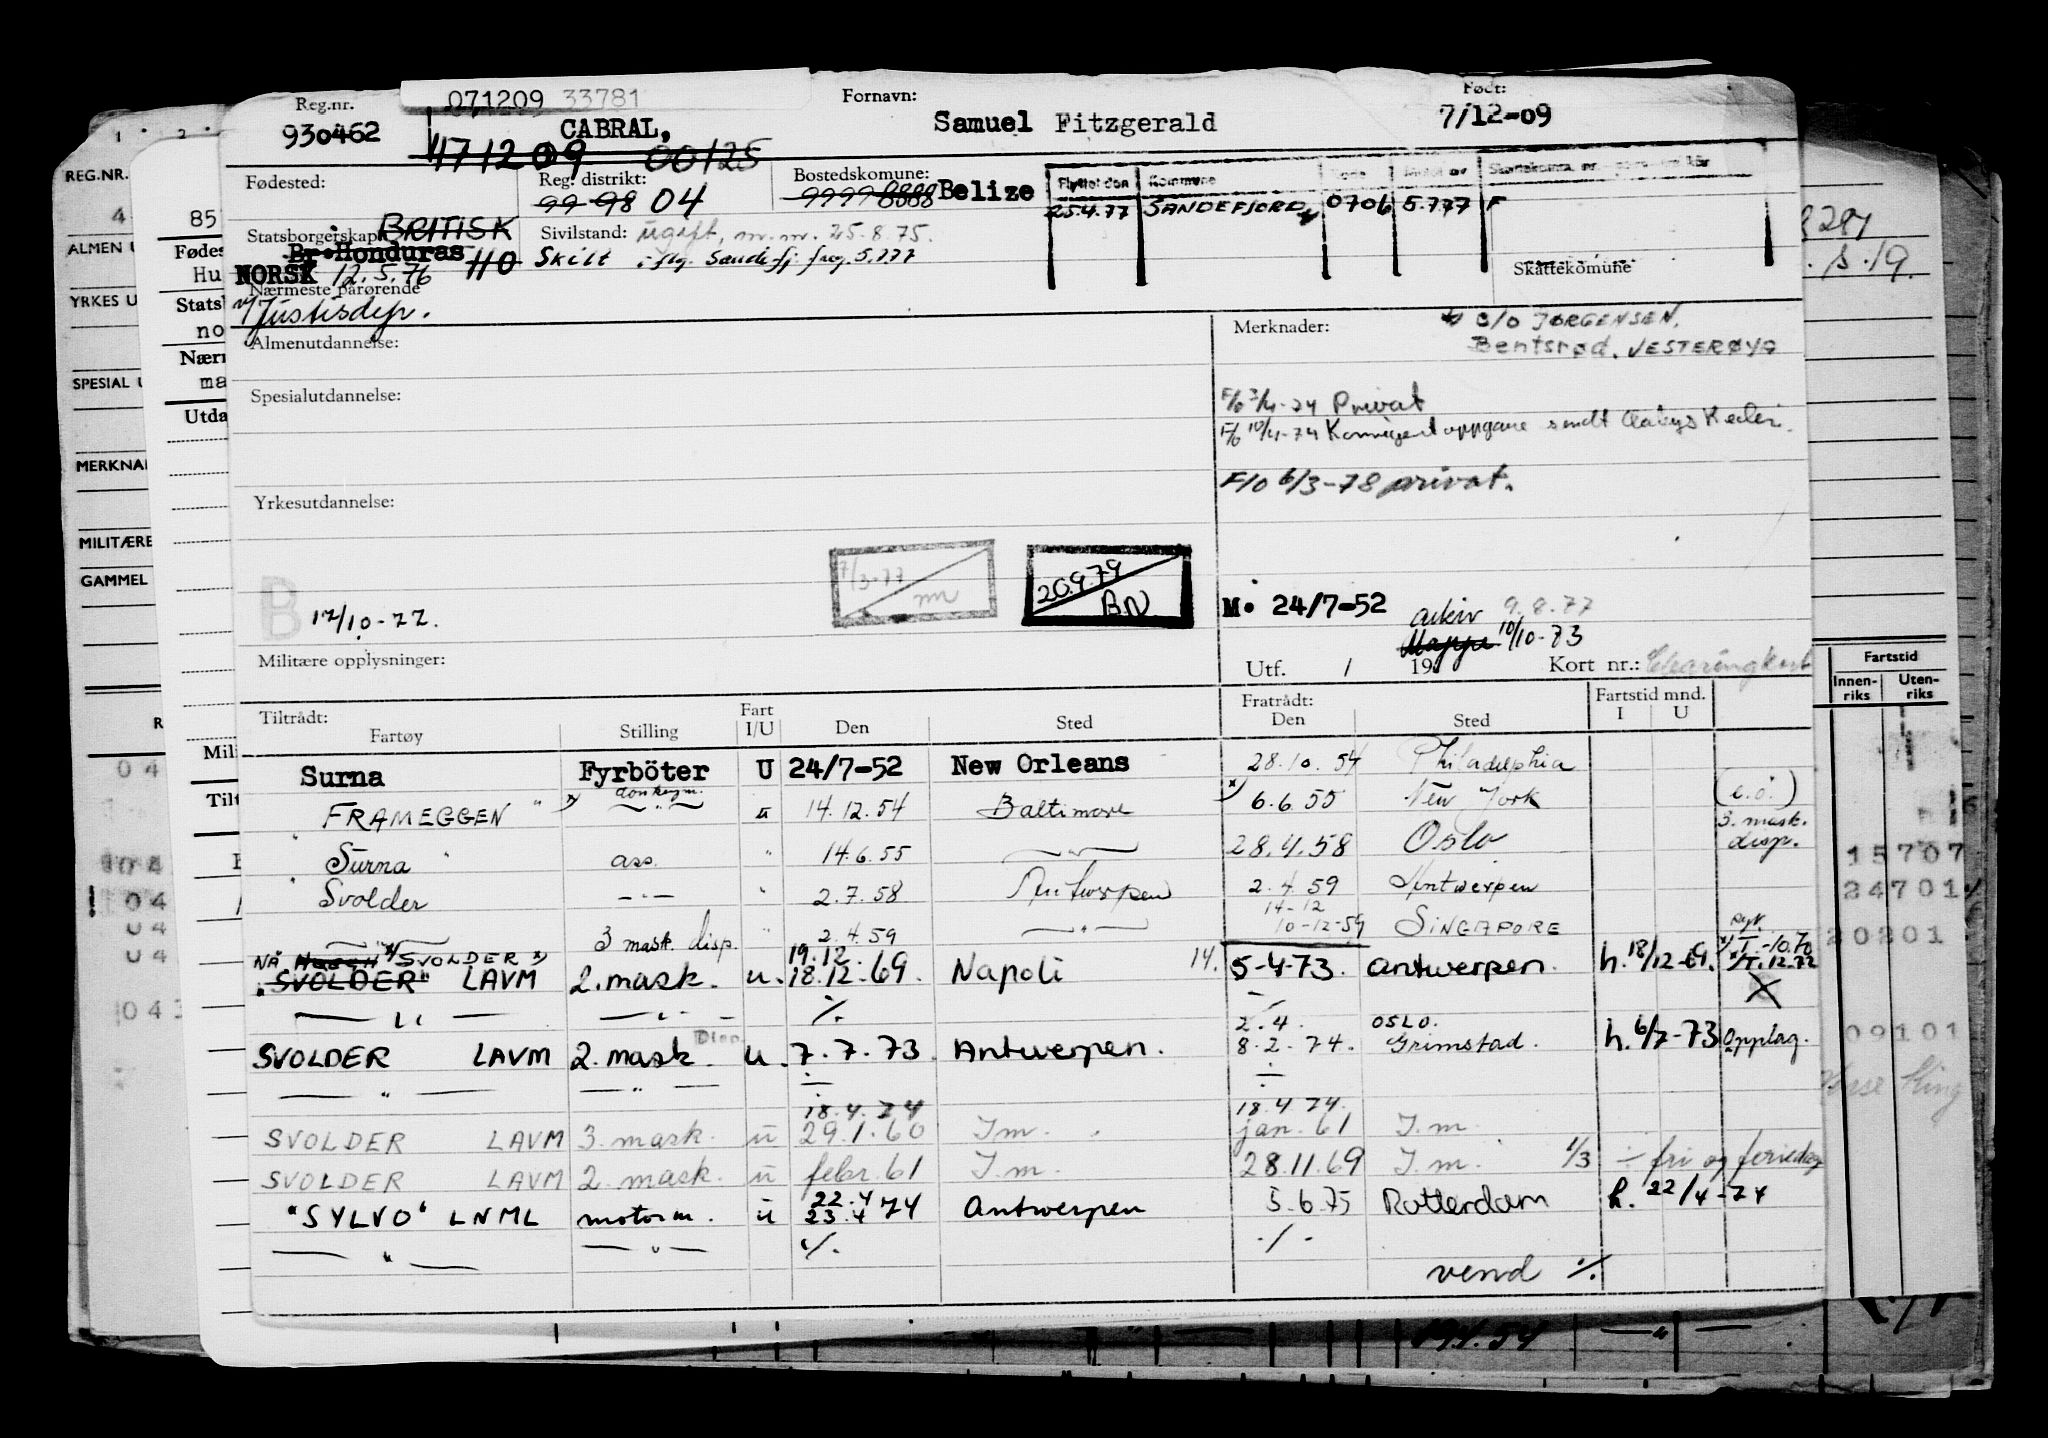 Reg.nr. 071209 33781 Fornavn: Født:
930462 CABRAL, Samuel Fitzgerald 7/12-09
471209 00125
Fødested: Reg. distrikt: Bostedskomune:
99 98 04 9999 8888 Belize
Flyttet den Kommune
25.4.77 SANDEFJORD 0706 5.777 F
Statsborgerskap: BRITISK Sivilstand: ugift, m.m. 25.8.75.
Br. Honduras 110 Skilt i flg. Sandefj. freg. 5.777
NORSK 12.5.76 Skattekomune
Nærmeste pårørende
v/Justisdep.
Almenutdannelse: Merknader: c/o JØRGENSEN,
Bentsrød, VESTERØYA
Spesialutdannelse:
F/o 3/4-74 Privat
F/o 10/4-74 sendt
F/O 6/3-78 privat.
Yrkesutdannelse:
7/3-77 20.9.79
BN
B 17/10-77.
M. 24/7-52 arkiv 9.8.77
Mappe 10/10-73
Militære opplysninger: Utf. / 19 Kort nr.: Clearingkort
Tiltrådt: Fart Fratrådt: Fartstid mnd.
Fartøy Stilling I/U Den Sted Den Sted I U
Surna Fyrböter U 24/7-52 New Orleans 28.10.54 Philadelphia
FRAMEGGEN donkeym. u 14.12.54 Baltimore 6.6.55 New York (e.o.)
Surna ass. " 14.6.55 " 28.4.58 Oslo 3. mask. disp.
Svolder -"- " 2.7.58 Antwerpen 2.4.59 Antwerpen
14-12
" 3 mask. disp. " 2.4.59 " 10-12-59 SINGAPORE
NÅ SVOLDER 19.12.
"SVOLDER" LAVM 2. mask. u. 18.12-69. Napoli 14. 5-4-73. Antwerpen. h. 18/12-69. T.-10.70
T. 12.72
— " — — " — ·/.
2.4. OSLO.
SVOLDER LAVM 2. mask Disp. u. 7.7.73. Antwerpen. 8-2-74. Grimstad. h. 6/7-73 Opplag.
— " — — " — ÷ ÷
18.4.74 18.4.74.
SVOLDER LAVM 3. mask. u 29.1.60 I.m. jan. 61 I.m.
SVOLDER LAVM 2. mask. u febr. 61 I.m. 28.11.69 I.m. 1/3 ÷ fri og feriedag
22.4
"SYLVO" LNML motorm. u 23.4 74 Antwerpen 5.6.75 Rotterdam h. 22/4-74
— " — — " — ·/. ·/·
vend ·/.
REG.NR.
85
ALMEN U
Fødes
Hu
YRKES U
Stats
no
Nærn
SPESIAL U
ma
Utda
MERKNA
MILITÆRE
GAMMEL
Mili
Tilt
Fartstid
Innen-riks Uten-riks
15707
24701
20201
09101
191.54